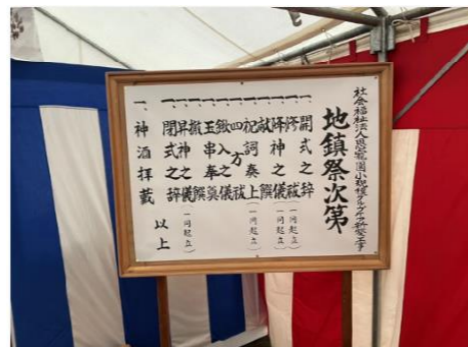 社会福祉法人恩寵園小規模グループケア新築工事
地鎮祭次第
一、開式之辞
一、修祓(一同起立)
一、降神之儀(一同起立)
一、献饌
一、祝詞奏上(一同起立)
一、四方祓
一、鍬入之儀
一、玉串奉奠
一、撤饌
一、昇神之儀(一同起立)
一、閉式之辞
一、神酒拝戴
以上